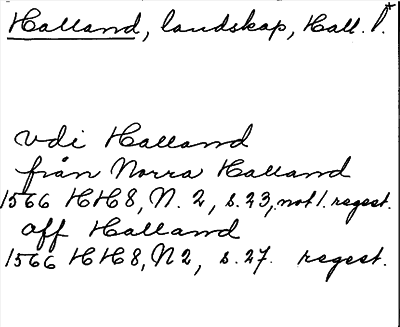 Halland, landskap, Hall. l.
vdi Halland
från Norra Halland
1566 HH8, N. 2, s.23, not 1. regest.
off Halland
1566 HH8, N2, s.27. regest.